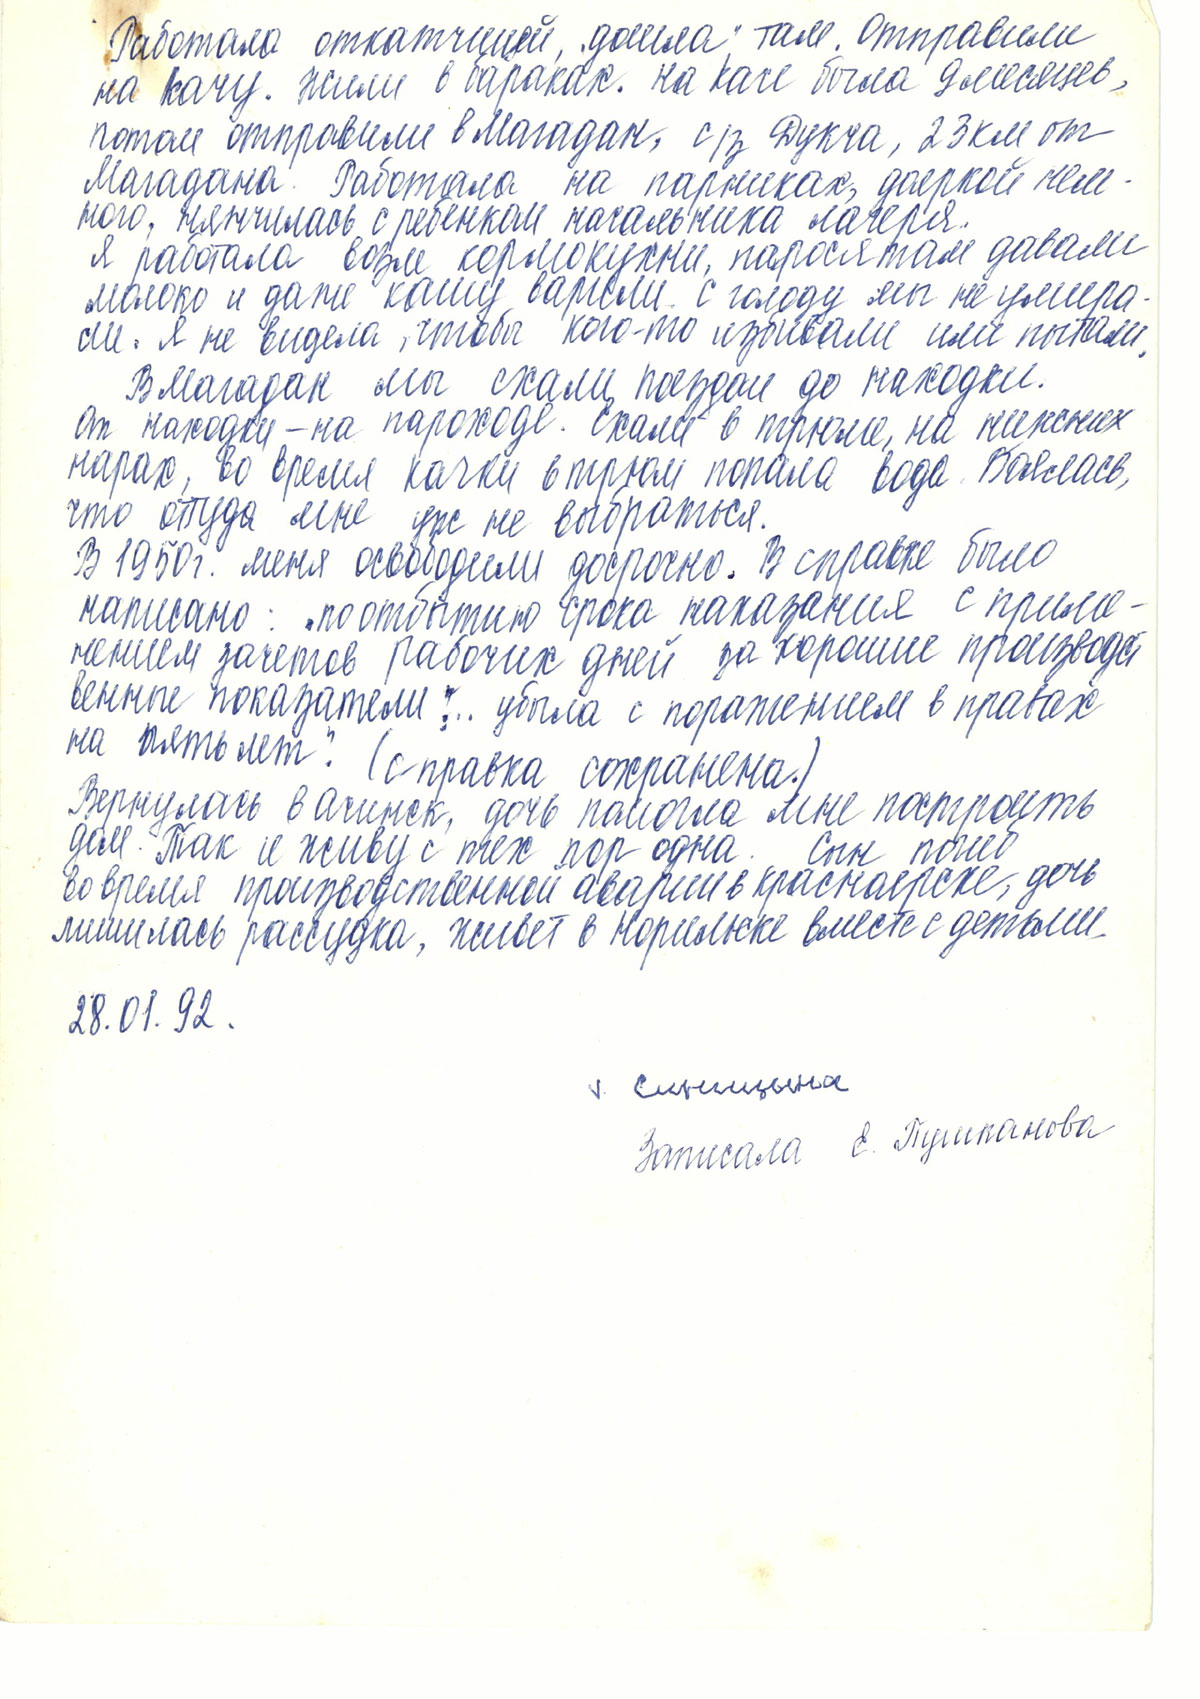 Работала откатчицей, „дошла" там. Отправили
на Качу. Жили в бараках. На Каче была 9 месяцев,
потом отправили в Магадан, с/з Дукча, 23 км от
Магадана. Работала на парниках, дояркой нем-
ного, нянчилась с ребенком начальника лагеря.
Я работала возле кормокухни, поросятам давали
молоко и даже кашу варили. С голоду мы не умира-
ли. Я не видела, чтобы кого-то избивали или пытали.
В Магадан мы ехали поездом до Находки.
От Находки – на пароходе. Ехали в трюме, на нижних
нарах, во время качки в трюм попала вода. Боялась,
что оттуда мне уж не выбраться.
В 1950 г. меня освободили досрочно. В справке было
написано: „по отбытию срока наказания с приме-
нением зачетов рабочих дней за хорошие производст
венные показатели"... убыла с поражением в правах
на пять лет". (справка сохранена.)
Вернулась в Ачинск, дочь помогла мне построить
дом. Так и живу с тех пор одна. Сын погиб
во время производственной аварии в Красноярске, дочь
лишилась рассудка, живет в Норильске вместе с детьми.
28.01.92.
Синицына
Записала Е. Тумканова